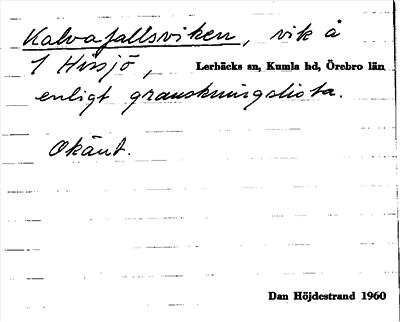 Kalvafallsviken, vik å
1 Hissjö, Lerbäcks sn, Kumla hd, Örebro län
enligt granskningslista.
Okänt.
Dan Höjdestrand 1960